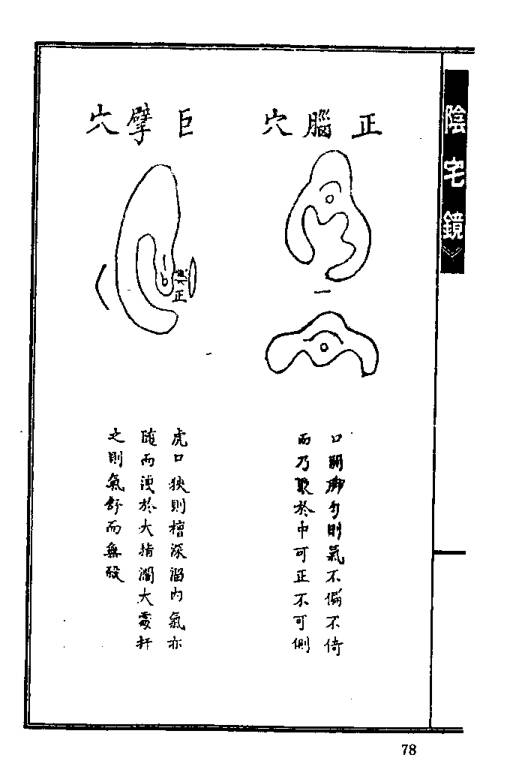 陰宅鏡
正腦穴
口開腳勻則氣不偏不倚
而乃聚於中可正不可側
巨擘穴
正
虎口狹則深溜內氣亦
隨而洩於大指濶大處扦
之則氣舒而無
78